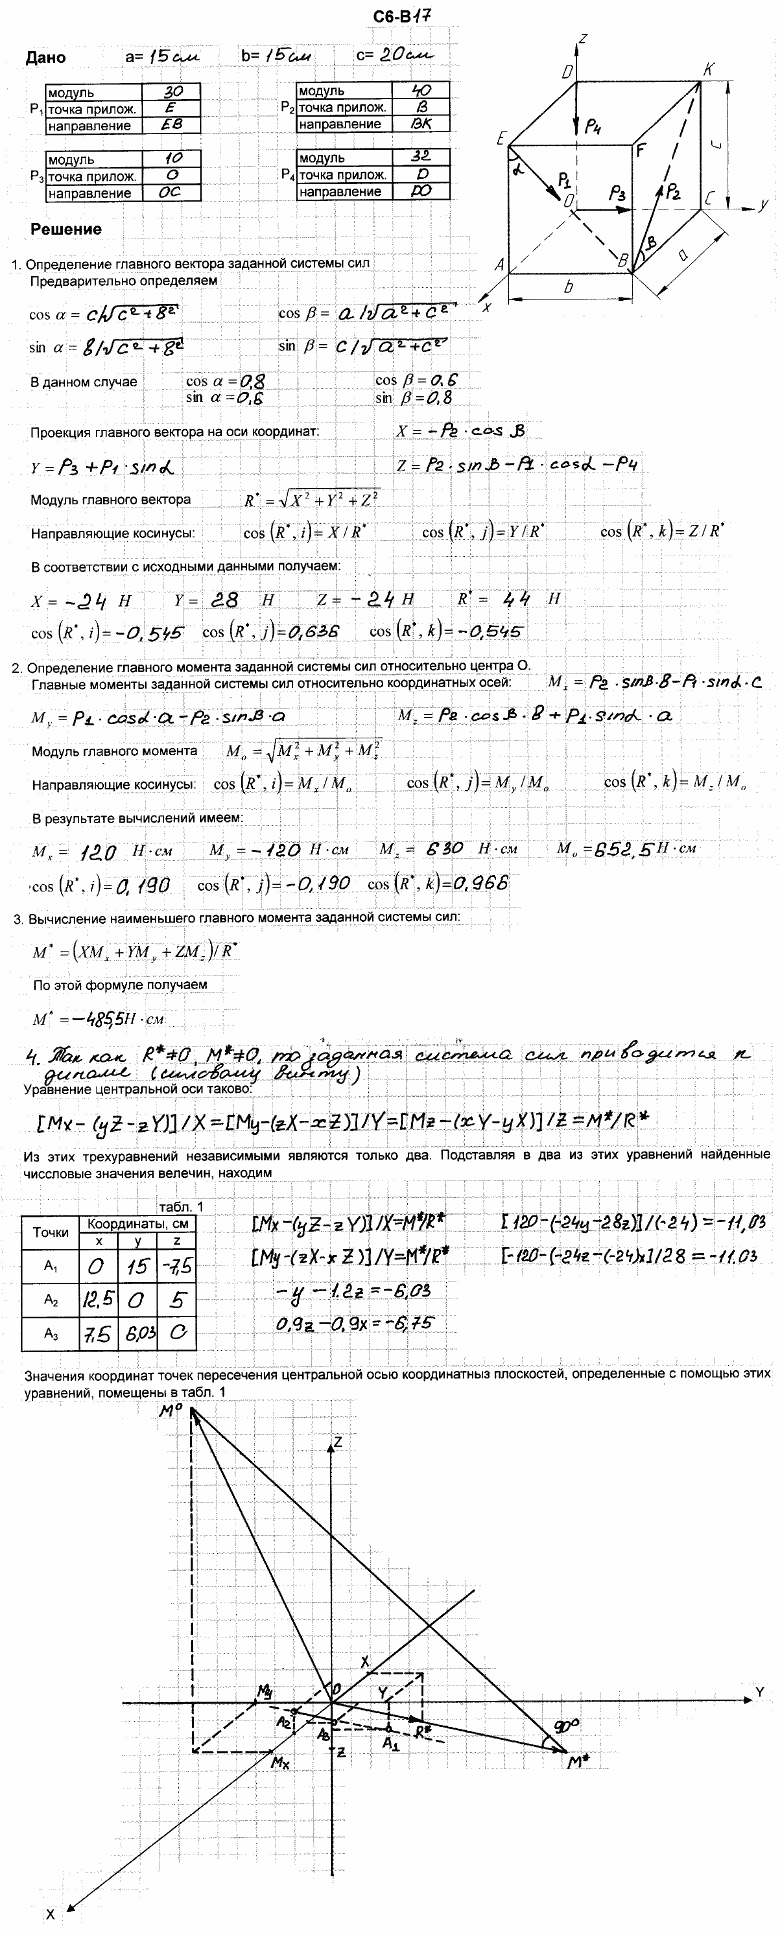 С6-В17
Дано a= 15см b= 15см c= 20см
P₁ модуль 30
точка прилож. E
направление EB
P₂ модуль 40
точка прилож. B
направление BK
P₃ модуль 10
точка прилож. O
направление OC
P₄ модуль 32
точка прилож. D
направление DO
z
D
K
E
P₄
F
c
α
P₁
O
P₃
P₂
C
y
A
B
β
a
b
x
Решение
1. Определение главного вектора заданной системы сил
Предварительно определяем
cos α = c/√c²+в² cos β = a/√a²+c²
sin α = в/√c²+в² sin β = c/√a²+c²
В данном случае cos α = 0,8 cos β = 0,6
sin α = 0,6 sin β = 0,8
Проекция главного вектора на оси координат: X = -P₂·cos β
Y = P₃ + P₁·sinα Z = P₂·sinβ - P₁·cosα - P₄
Модуль главного вектора R* = √X² + Y² + Z²
Направляющие косинусы: cos (R*, i) = X / R* cos (R*, j) = Y / R* cos (R*, k) = Z / R*
В соответствии с исходными данными получаем:
X = -24 Н Y = 28 Н Z = -24 Н R* = 44 Н
cos (R*, i) = -0,545 cos (R*, j) = 0,636 cos (R*, k) = -0,545
2. Определение главного момента заданной системы сил относительно центра О.
Главные моменты заданной системы сил относительно координатных осей: Mₓ = P₂·sinβ·в - P₁·sinα·c
M_y = P₁·cosα·a - P₂·sinβ·a M_z = P₂·cosβ·в + P₁·sinα·a
Модуль главного момента Mₒ = √Mₓ² + M_y² + M_z²
Направляющие косинусы: cos (R*, i) = Mₓ / Mₒ cos (R*, j) = M_y / Mₒ cos (R*, k) = M_z / Mₒ
В результате вычислений имеем:
Mₓ = 120 Н·см M_y = -120 Н·см M_z = 630 Н·см Mₒ = 652,5 Н·см
cos (R*, i) = 0,190 cos (R*, j) = -0,190 cos (R*, k) = 0,966
3. Вычисление наименьшего главного момента заданной системы сил:
M* = (XMₓ + YM_y + ZM_z) / R*
По этой формуле получаем
M* = -485,5 Н·см
4. Так как R*≠0, M*≠0, то заданная система сил приводится к
динаме (силовому винту)
Уравнение центральной оси таково:
[Mx-(yZ-zY)]/X=[My-(zX-xZ)]/Y=[Mz-(xY-yX)]/Z=M*/R*
Из этих трехуравнений независимыми являются только два. Подставляя в два из этих уравнений найденные
числсовые значения велечин, находим
табл. 1
Точки Координаты, см
x y z
A₁ 0 15 -7,5
A₂ 12,5 0 5
A₃ 7,5 6,03 0
[Mx-(yZ-zY)]/X=M*/R* [120-(-24y-28z)]/(-24)=-11,03
[My-(zX-xZ)]/Y=M*/R* [-120-(-24z-(-24)x]/28=-11.03
-y-1.2z=-6,03
0,9z-0,9x=-6,75
Значения координат точек пересечения центральной осью координатныз плоскостей, определенные с помощью этих
уравнений, помещены в табл. 1
M⁰
Z
X
My
O
Y
Y
A₂
A₃
A₁
R*
90°
Mx
z
M*
X